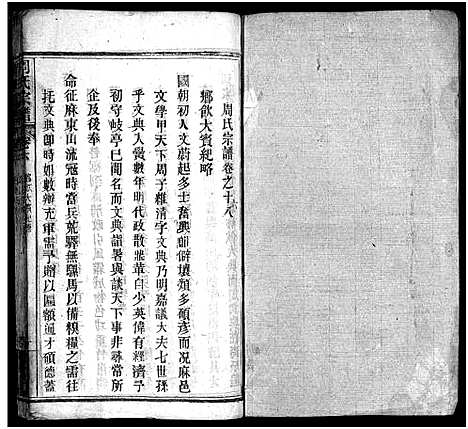 周氏宗譜卷之十八
鄉飲大賓紀略
國朝初人文蔚起多士奮興即僻壤類多碩彥而況麻邑
文學甲天下周子維清字文典乃明嘉議大夫七世孫
乎文典入黌數年時政散雖華白少英偉有經濟予
初守岐亭已聞名而文典詣署與談天下事非尋常所
企及後奉
命征麻東山流寇時當兵荒驛無騾馬以備糗糧之需往
托文典即時如數辦充軍需予贈以匾額通才碩德蓋
周氏宗譜